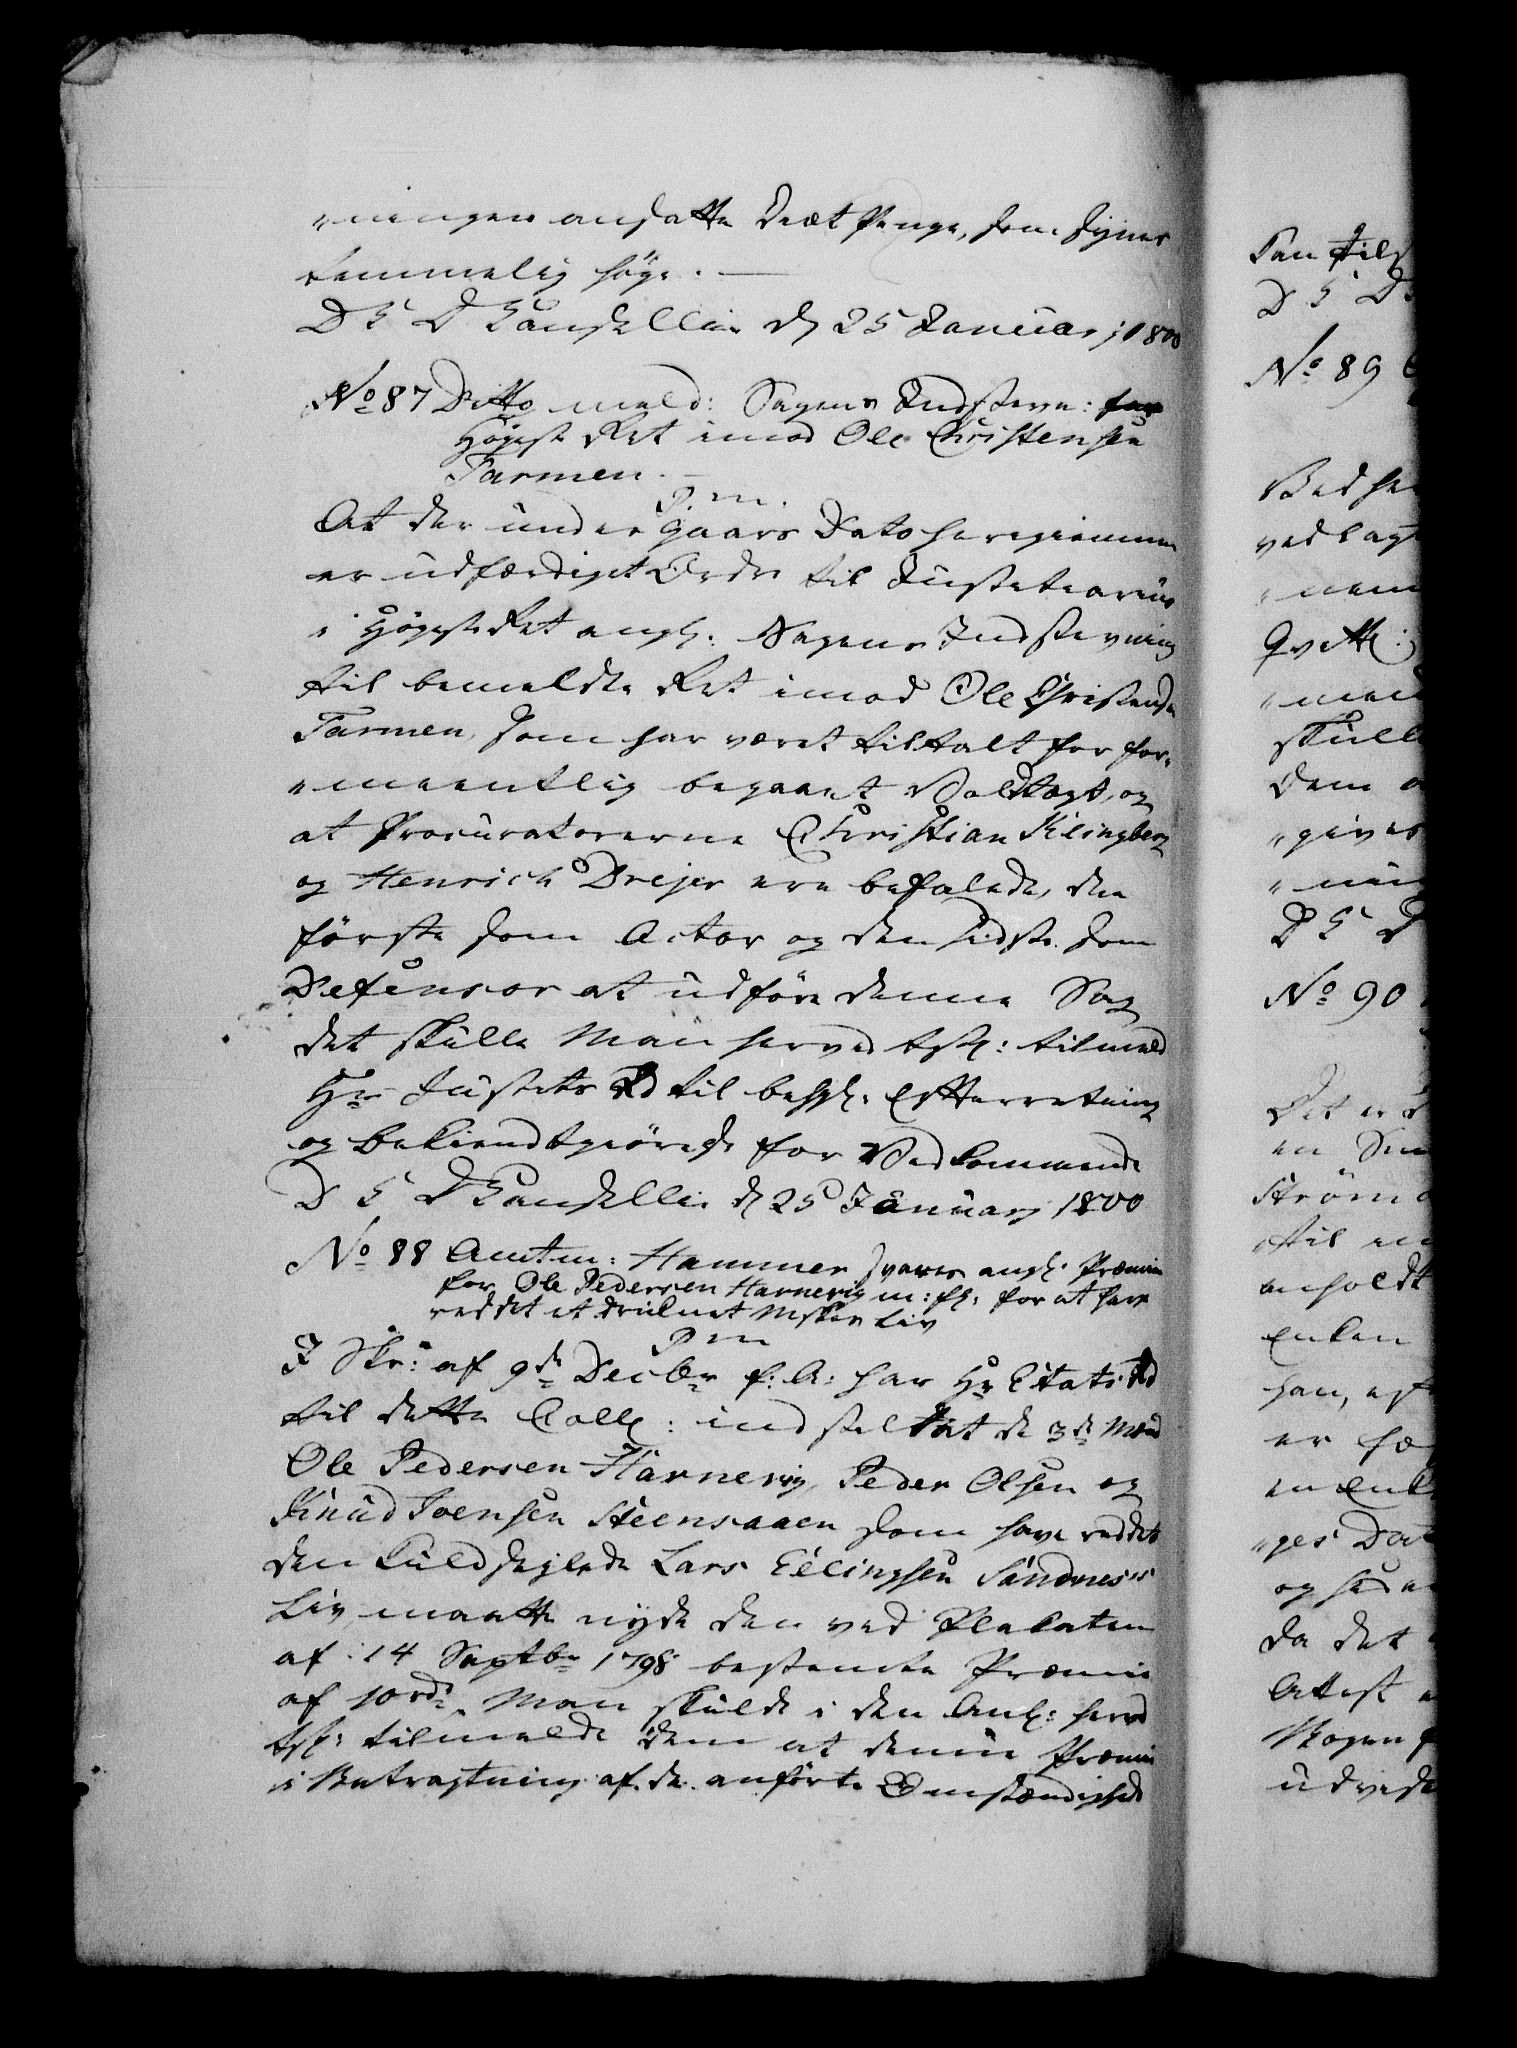 "ningen ansatte Diæt Penge, som synes
temmelig høye. —
D K D Cancellie d 25 Januarj 1800
No 87 Ditto meld: Sagens Indstevn: for
Høyeste Ret imod Ole Christensen
Farmen. —
P. M.
At der under Gaars Dato herigiennem
er udfærdiget Ordre til Justitiarius
i Høyeste Ret angl. Sagens Indstevning
til bemeldte Ret imod Ole Christensen
Farmen, som har været tiltalt for for-
"meentlig begaaet Voldtægt, og
at Procuratorerne Christian Klingberg
og Henrich Drejer ere befalede, den
første som Actor og den sidste som
Defensor at udføre denne Sag
det skulle Man herved tjstl: tilmeld
Hr Justits Rd til behgl. Efterretning
og Bekiendtgiørelse for Vedkommende
D K D Cancellie d 25 Januarj 1800
No 88 Amtm: Hammer svares angl. Præmie
for Ole Pedersen Harnevig m: fl: for at have
reddet et druknet Mskes Liv
P M
I Skr: af 9de Decbr f: A: har Hr Etats Rd
til dette Coll: indstillet at de 3de Mænd
Ole Pedersen Harnevig, Peder Olsen og
Knud Joensen Steensaaen som have reddet
den Kuldsejlede Lars Ellingsen Sandness's
Liv, maatte nyde den ved Plakaten
af 14 Septbr 1798 bestemte Præmie
af 10 rd. Man skulde i den Anl: herved
tjstl: tilmelde Dem at denne Præmie
i Betragtning af de anførte Omstændighed
Kan til
D K D
No 89
Ved he
vedlagt
"nem
Qvitt:
"med
skulle
Dem
"gives
"nin
D K D
No 90
Det er
en
Strøm
"til en
anholdt
Enken
han, ef
er
en Enke
"ges Dat
og
da det
Attest
Skogen
udvist